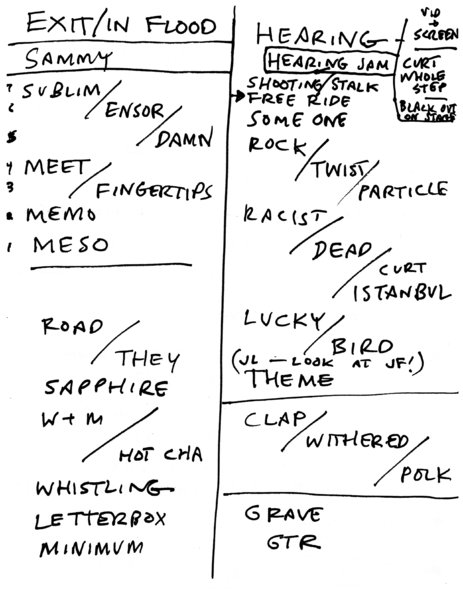 EXIT/IN FLOOD
SAMMY
7 SUBLIM/
6 ENSOR/
5 DAMN
4 MEET/
3 FINGERTIPS
2 MEMO
1 MESO
ROAD/
THEY
SAPPHIRE
W+M/
HOT CHA
WHISTLING
LETTERBOX
MINIMUM
HEARING
VID
→
SCREEN
HEARING JAM
CURT
WHOLE
STEP
BLACK OUT
ON STAGE
SHOOTING/STALK
→ FREE RIDE
SOME ONE
ROCK/
TWIST/
PARTICLE
RACIST/
DEAD/
CURT
ISTANBUL
LUCKY/
BIRD
(JL - LOOK AT JF!)
THEME
CLAP/
WITHERED/
POLK
GRAVE
GTR